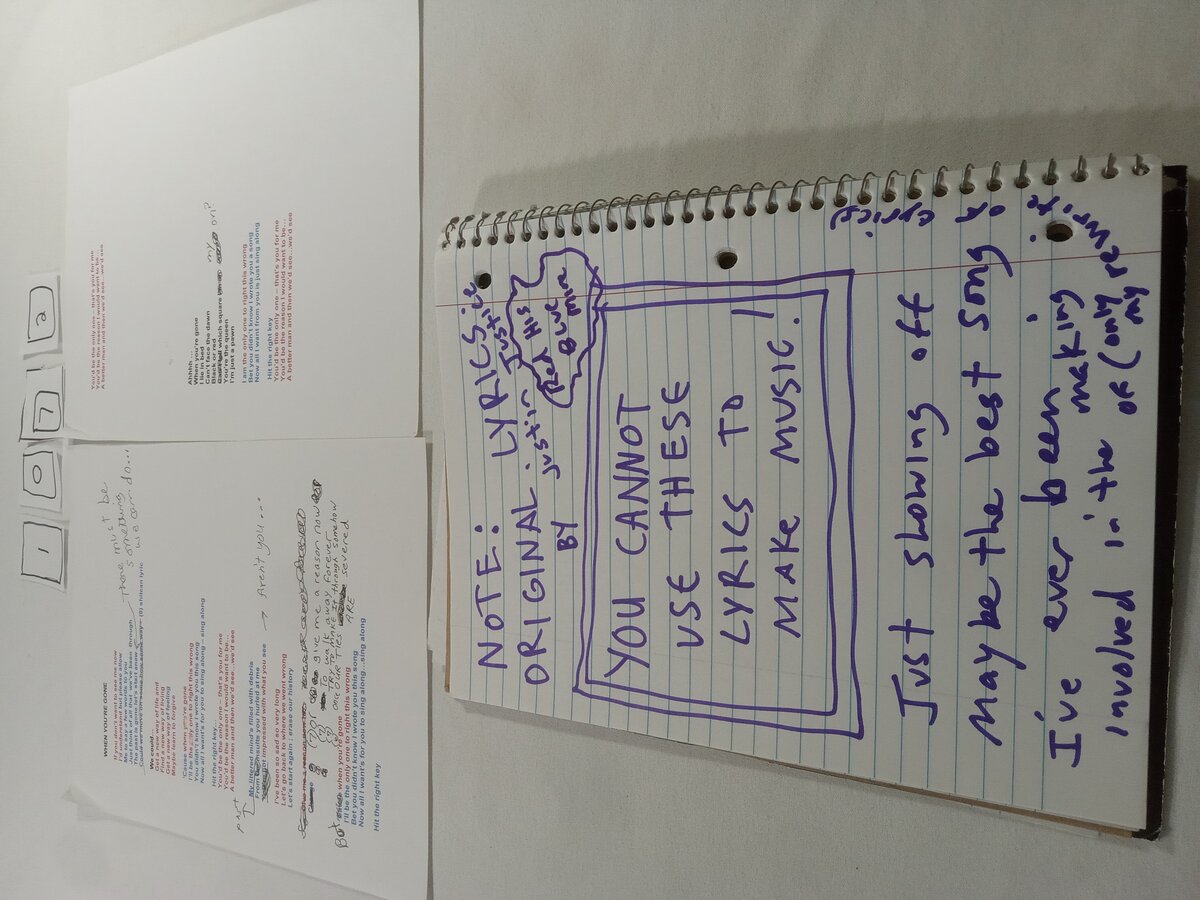 1 0 7 2
WHEN YOU'RE GONE
If you don't want to see me now
I'd understand but please allow
Me to say a few words to you
Just think of all that we've been through
The past is gone let's start anew
there must be
something
we can do...
We could...
Get a new way of life and
Find a new way of living
Get a new way of feeling
Maybe learn to forgive
'Cause when you're gone
I'll be the only one to right this wrong
You didn't know I wrote you this song
Now all I want's for you to sing along – sing along
Hit the right key
You'd be the only one – that's you for me
You'd be the reason I would want to be...
A better man and then we'd see...we'd see
My littered mind's filled with debris
From insults you hurled at me
not impressed with what you see → Aren't you...
I've been so sad so very long
Let's go back to where we went wrong
Let's start again; erase our history
give me a reason now
To walk away forever
Try to make it through somehow
Once our ties ARE severed
But when you're gone
I'll be the only one to right this wrong
Bet you didn't know I wrote you this song
Now all I want's for you to sing along...sing along
Hit the right key
You'd be the only one – that's you for me
You'd be the reason I would want to be...
A better man and then we'd see...we'd see
Ahhhh ...
When you're gone
I lie in bed
Can't face the dawn
Black or red
which square my on?
You're the queen
I'm just a pawn
I am the only one to right this wrong
Bet you didn't know I wrote you a song
Now all I want from you is just sing along
Hit the right key
You'd be the only one – that's you for me
You'd be the reason I would want to be...
A better man and then we'd see...we'd see
NOTE:
ORIGINAL LYRICS:
BY Justin
Red His
Blue mine
YOU CANNOT
USE THESE
LYRICS TO
MAKE MUSIC!
Just showing off lyrics
Maybe the best song
I've ever been
involved in the making
of (only my rewrite